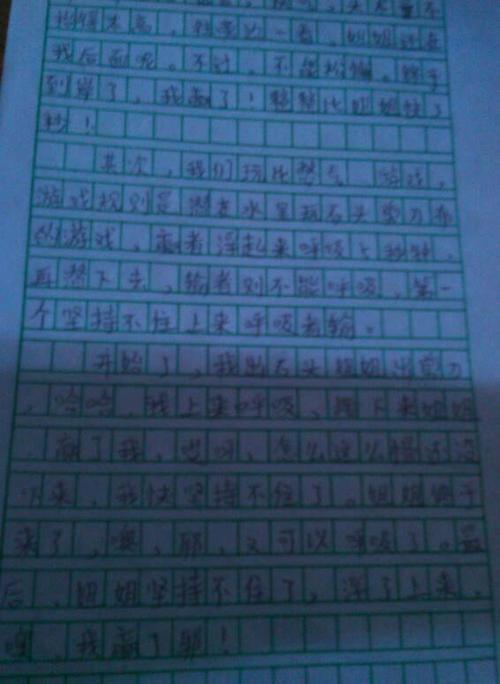 我后面呢。不过,不能松懈。终于
到岸了,我赢了!整整比姐姐快了
秒!
其次,我们玩比憋气 游戏,
游戏规则是潜在水里玩石头剪刀布
的游戏,赢者浮起来呼吸5秒钟,
再潜下去,输者则不能呼吸,第一
个坚持不住上来呼吸者输。
开始了,我出石头姐姐出剪刀
,哈哈,我上来呼吸,接下来姐姐
赢了我,哎呀,怎么这么慢还没
下来,我快坚持不住了。姐姐终于
来了,噢,耶,又可以呼吸了。最
后,姐姐坚持不住了,浮了上来。
噢,我赢了耶!